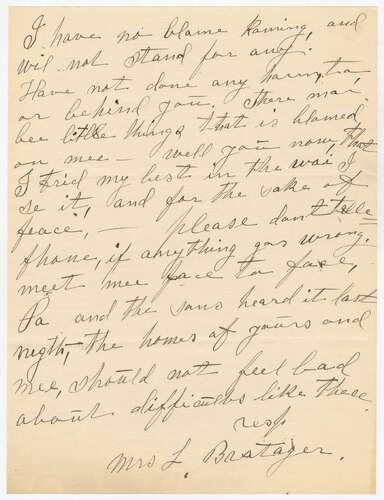 I have no blame koming, and
wil not stand for any.
Have not done any harm, to,
or behind you. There mai
bee little things that is blamed
on mee — well you now, that
I trid my best in the wai I
se it, and for the sake of
peace, — please don't tele-
phone, if anything gos wrong.
meet mee face to face,
Pa and the sons heard it last
nigth, the homes of yours and
mee, should not feel bad
about difficultis like these.
resp.
Mrs L. Bratager.